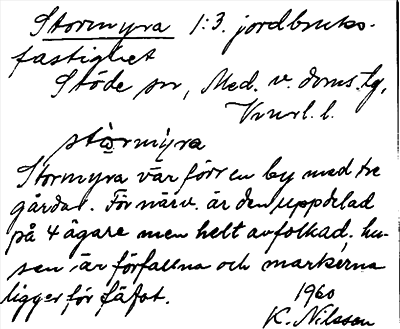 Stormyra 1:3. jordbruks-
fastighet
Stöde sn, Med. v. doms.lg,
Vnrl. l.
stòrmỳra
Stormyra var förr en by med tre
gårdar. För närv. är den uppdelad
på 4 ägare men helt avfolkad. hu-
sen är förfallna och markerna
ligger för fäfot.
1960
K. Nilsson